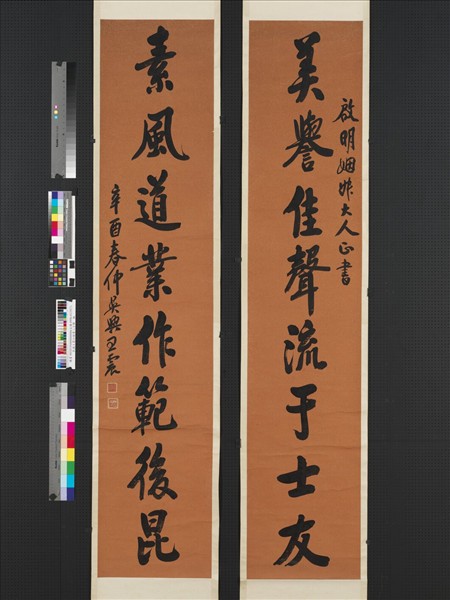 啟明姻大人正書
美譽佳聲流于士友
素風道業作範後昆
辛酉春仲吳興王震